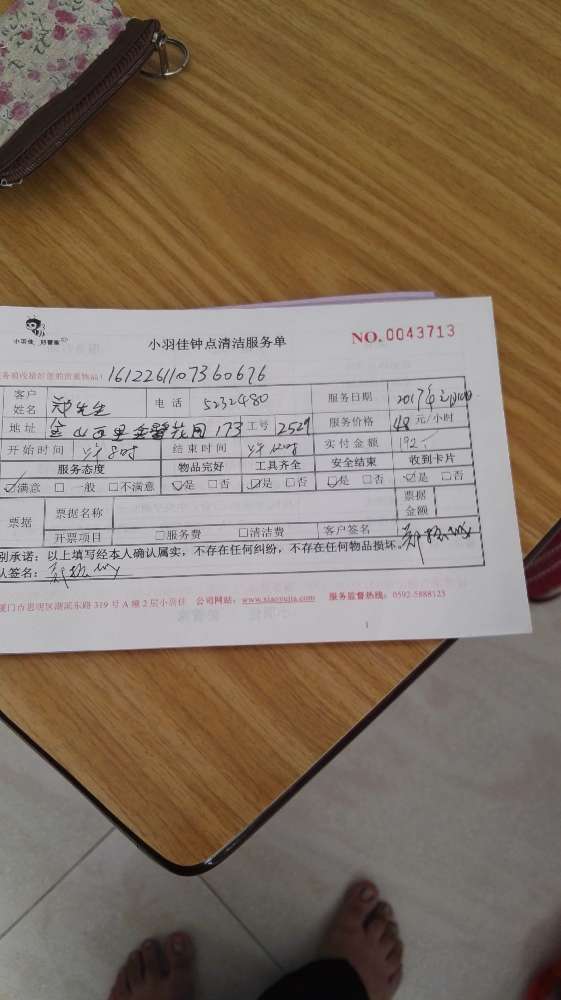 小羽佳 好管家
小羽佳钟点清洁服务单
NO.0043713
务前收拾好您的贵重物品!
1612261107360676
客户姓名 郑先生 电话 5232480 服务日期 2017年
地址 金山西里金馨花园173 工号 2529 服务价格 48元/小时
开始时间 8时 结束时间 12时 实付金额 192
服务态度 物品完好 工具齐全 安全结束 收到卡片
☑满意 □一般 □不满意 ☑是 □否 ☑是 □否 ☑是 □否 ☑是 □否
票据 票据名称 票据金额
开票项目 □服务费 □清洁费 客户签名
别承诺：以上填写经本人确认属实，不存在任何纠纷，不存在任何物品损坏。
人签名：
厦门市思明区湖滨东路319号A幢2层小羽佳 公司网站：www.xiaoyujia.com 服务监督热线：0592-5888123
1